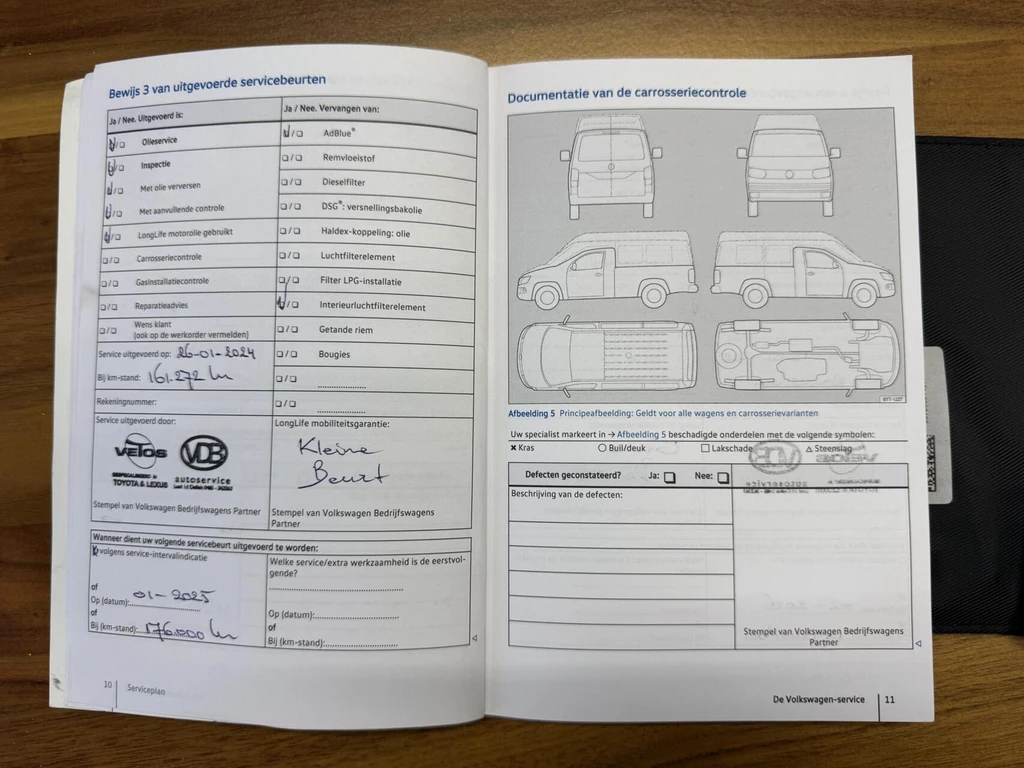 Bewijs 3 van uitgevoerde servicebeurten
Ja / Nee. Uitgevoerd is:
Ja / Nee. Vervangen van:
Olieservice
AdBlue®
Inspectie
Remvloeistof
Met olie verversen
Dieselfilter
Met aanvullende controle
DSG®: versnellingsbakolie
LongLife motorolie gebruikt
Haldex-koppeling: olie
Carrosseriecontrole
Luchtfilterelement
Gasinstallatiecontrole
Filter LPG-installatie
Reparatieadvies
Interieurluchtfilterelement
Wens klant
(ook op de werkorder vermelden)
Getande riem
Service uitgevoerd op: 26-01-2024
Bougies
Bij km-stand: 161.272 km
Rekeningnummer:
Service uitgevoerd door:
LongLife mobiliteitsgarantie:
VETOS
GESPECIALISEERD IN
TOYOTA & LEXUS
VDB
autoservice
Kleine
Beurt
Stempel van Volkswagen Bedrijfswagens Partner
Stempel van Volkswagen Bedrijfswagens
Partner
Wanneer dient uw volgende servicebeurt uitgevoerd te worden:
volgens service-intervalindicatie
of
Op (datum): 01-2025
of
Bij (km-stand): 176.000 km
Welke service/extra werkzaamheid is de eerstvol-
gende?
Op (datum):
of
Bij (km-stand):
10 Serviceplan
Documentatie van de carrosseriecontrole
B7T-1227
Afbeelding 5 Principeafbeelding: Geldt voor alle wagens en carrosserievarianten
Uw specialist markeert in → Afbeelding 5 beschadigde onderdelen met de volgende symbolen:
✖ Kras ○ Buil/deuk □ Lakschade △ Steenslag
Defecten geconstateerd? Ja: □ Nee: □
Beschrijving van de defecten:
Stempel van Volkswagen Bedrijfswagens
Partner
De Volkswagen-service 11